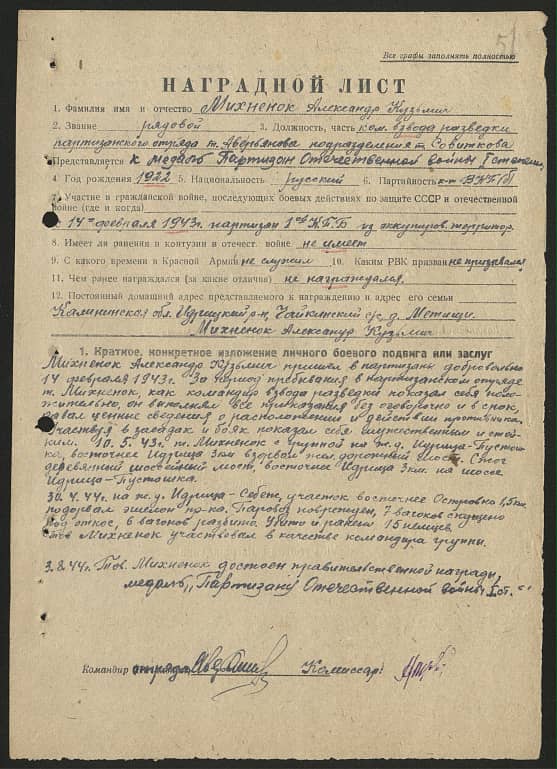 51
Все графы заполнять полностью
НАГРАДНОЙ ЛИСТ
1. Фамилия имя и отчество Михненок Александр Кузьмич
2. Звание рядовой 3. Должность, часть ком. взвода разведки
партизанского отряда т. Аверьянова подразделения т. Совиткова
Представляется к медали Партизан Отечественной войны I степени
4. Год рождения 1922 5. Национальность русский 6. Партийность к-т ВКП(б)
7. Участие в гражданской войне, последующих боевых действиях по защите СССР и отечественной
войне (где и когда)
с 14го февраля 1943г. партизан 1ой К.П.Б из оккупиров. территор.
8. Имеет ли ранения и контузии в отечест. войне не имеет
9. С какого времени в Красной Армии не служил 10. Каким РВК призван не призывался
11. Чем ранее награждался (за какие отличия) не награждался.
12. Постоянный домашний адрес представляемого к награждению и адрес его семьи
Калининская обл. Идрицкий р-н, Чайкинский с/с д. Метищи.
Михненок Александр Кузьмич
1. Краткое, конкретное изложение личного боевого подвига или заслуг
Михненок Александр Кузьмич пришёл в партизаны добровольно
14 февраля 1943г. За период пребывания в партизанском отряде
т. Михненок, как командир взвода разведки показал себя поло-
жительно, он выполнял все приказания без оговорочно и в срок,
давал ценные сведения о расположении и действии противника.
Участвуя в засадах и боях показал себя мужественным и стой-
ким. 10.5.43г. т. Михненок с группой на ж.д. Идрица-Пустош-
ка, восточнее Идрица 3км взорвал жел. дорожный мост. Сжог
деревянный шоссейный мост, восточнее Идрица 3км. на шоссе
Идрица-Пустошка.
30.4.44г. на ж.д. Идрица-Себеж, участок восточнее Островно 1,5км
подорвал эшелон пр-ка. Паровоз повреждён, 7 вагонов спущено
под откос, 8 вагонов разбито. Убито и ранено 15 немцев.
тов Михненок участвовал в качестве командира группы.
3.8.44г. Тов. Михненок достоен правительственной награды,
медаль „Партизану Отечественной войны I ст."
Командир отряда Комиссар: